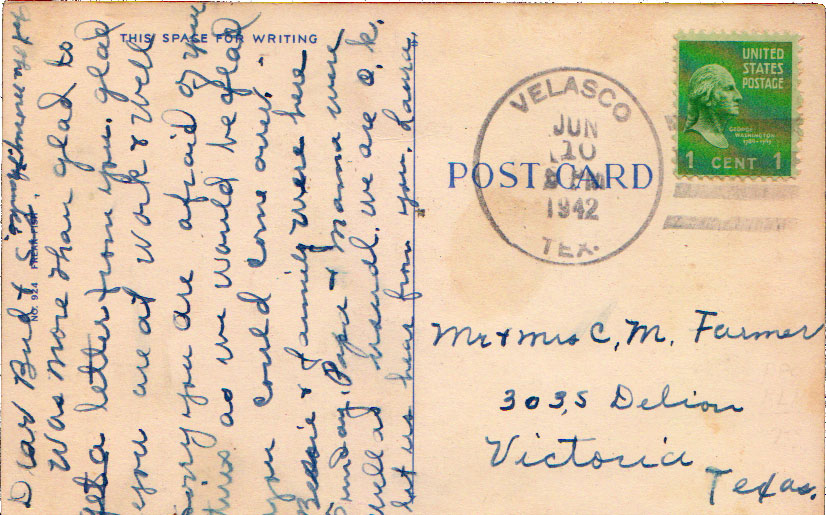 THIS SPACE FOR WRITING
Dear Bud & S
Was more than glad to
get a letter from you. glad
you are at work & well
sorry you are afraid of your
tires as we would be glad
you could come over.
Bessie & family were here
Sunday. Papa & Mama were
well as usual. we are o.k.
let us hear from you. Laura.
No. 924
POST CARD
VELASCO
JUN
10
1942
TEX.
UNITED
STATES
POSTAGE
GEORGE
WASHINGTON
1 CENT 1
Mr & Mrs C. M. Farmer
303 S Delion
Victoria
Texas.